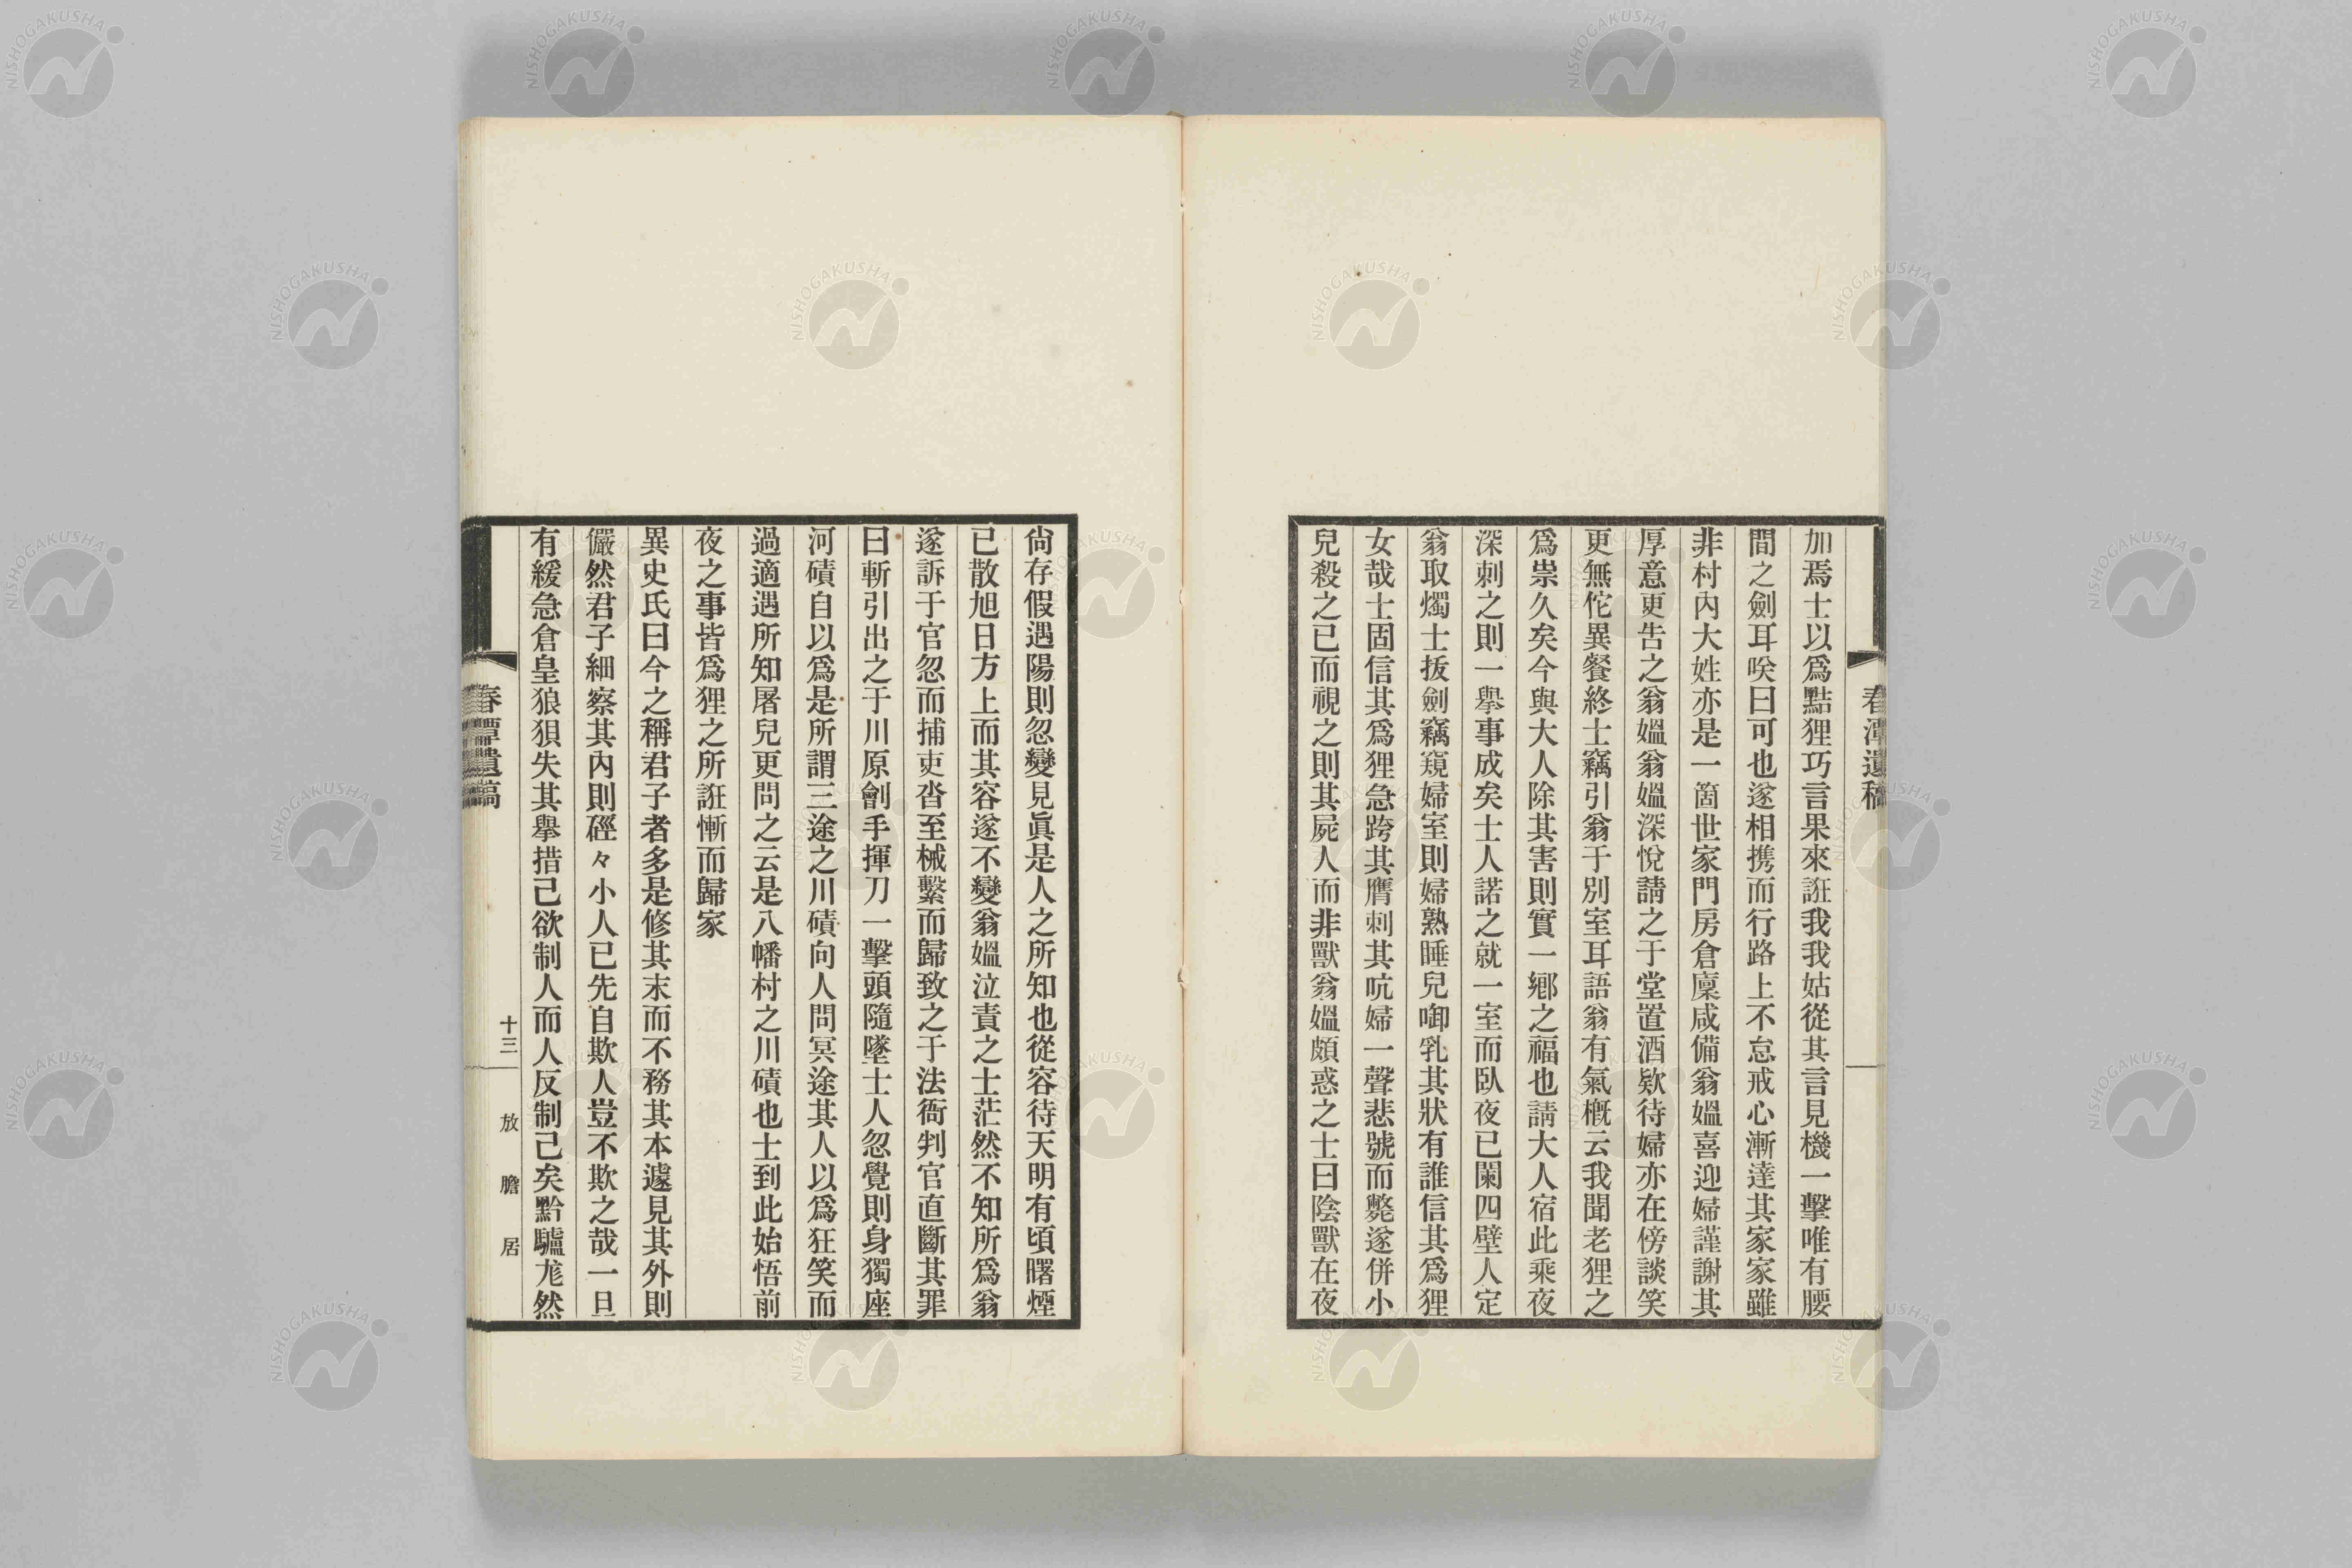 春潭遺稿
加焉士以爲黠狸巧言果來誑我我姑從其言見機一擊唯有腰
間之劍耳唉曰可也遂相携而行路上不怠戒心漸達其家家雖
非村內大姓亦是一箇世家門房倉廩咸備翁媼喜迎婦謹謝其
厚意更告之翁媼翁媼深悅請之于堂置酒欵待婦亦在傍談笑
更無佗異餐終士竊引翁于別室耳語翁有氣槪云我聞老狸之
爲祟久矣今與大人除其害則實一鄕之福也請大人宿此乘夜
深刺之則一擧事成矣士人諾之就一室而臥夜已闌四壁人定
翁取燭士拔劍竊窺婦室則婦熟睡兒啣乳其狀有誰信其爲狸
女哉士固信其爲狸急跨其膺刺其吭婦一聲悲號而斃遂併小
兒殺之已而視之則其屍人而非獸翁媼頗惑之士曰陰獸在夜
尙存假遇陽則忽變見眞是人之所知也從容待天明有頃曙煙
已散旭日方上而其容遂不變翁媼泣責之士茫然不知所爲翁
遂訴于官忽而捕吏沓至械繫而歸致之于法衙判官直斷其罪
曰斬引出之于川原劊手揮刀一擊頭隨墜士人忽覺則身獨座
河磧自以爲是所謂三途之川磧向人問冥途其人以爲狂笑而
過適遇所知屠兒更問之云是八幡村之川磧也士到此始悟前
夜之事皆爲狸之所誑慚而歸家
異史氏曰今之稱君子者多是修其末而不務其本遽見其外則
儼然君子細察其內則硜々小人已先自欺人豈不欺之哉一旦
有緩急倉皇狼狽失其擧措己欲制人而人反制己矣黔驢尨然
春潭遺稿
十三
放膽居